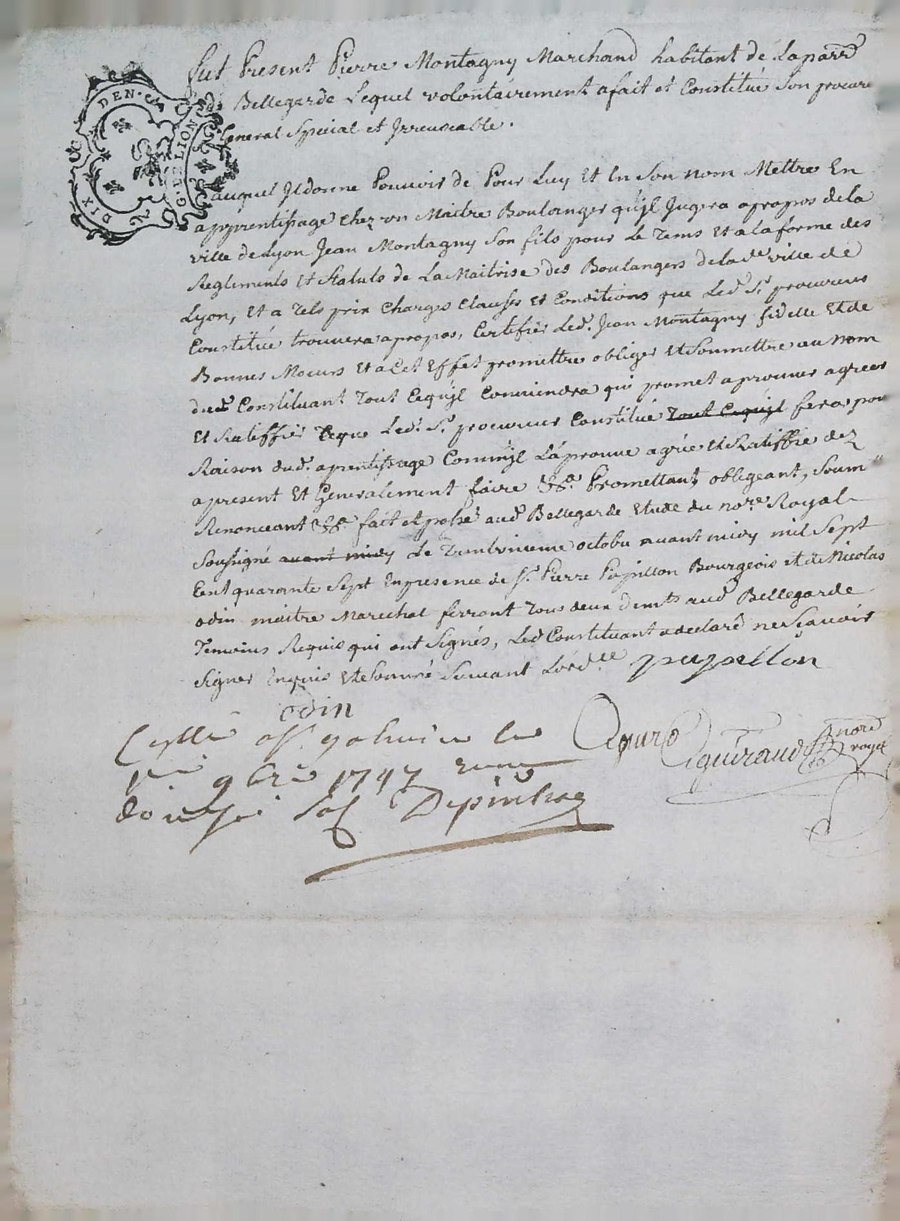 DIX DEN.
G. DE LION
fut Present Pierre Montagny Marchand habitant de Laparr.
Bellegarde Lequel volontairement afait et Constitué Son procure
General Special et Irreuocable.
auquel Jldonne Pouvoir de Pour Luy Et En Son nom Mettre En
apprentissage Chez un Maitre Boulanger quíjl Jugera apropos dela
ville deLyon Jean Montagny Son fils pour Le Tems Et ala forme des
Reglements Et Statuts de La Maitrise des Boulangers delad.e ville de
Lyon, Et a Tels prix Charges Clauses Et Conditions que Led. S.r procureur
Constitué trouvera apropos, Certifier Led. Jean Montagny fidelle Et de
Bonnes Moeurs Et a Cet Effet promettre obliger Et Soumettre au nom
dud. Constituant Tout Cequíjl Conviendra qui promet aprouver agreer
Et Ratiffier Ceque Led. S.r procureur Constitué Tout Cequíjl fera pour
Raison dud. aprentissage Commíjl Laprouve agrée Et Ratiffie dez
apresent Et Generalement faire &a. Promettant, obligeant, Soum.
Renonceant &a. fait et passé aud. Bellegarde Etude du no.re Royal
Soussigné avant midy Le octobre avant midy mil Sept
Cent quarante Sept En presence de S.r Pierre Papillon Bourgeois et de Nicolas
odin maitre Marechal ferrant Tous deux dem.ts aud. Bellegarde
Temoins Requis qui ont Signés, Led. Constituant adeclaré ne Sçavoir
Signer Enquis Et Sommé Suivant Lord.ce papillon
odin
9bre 1747
guiraud no.re royal